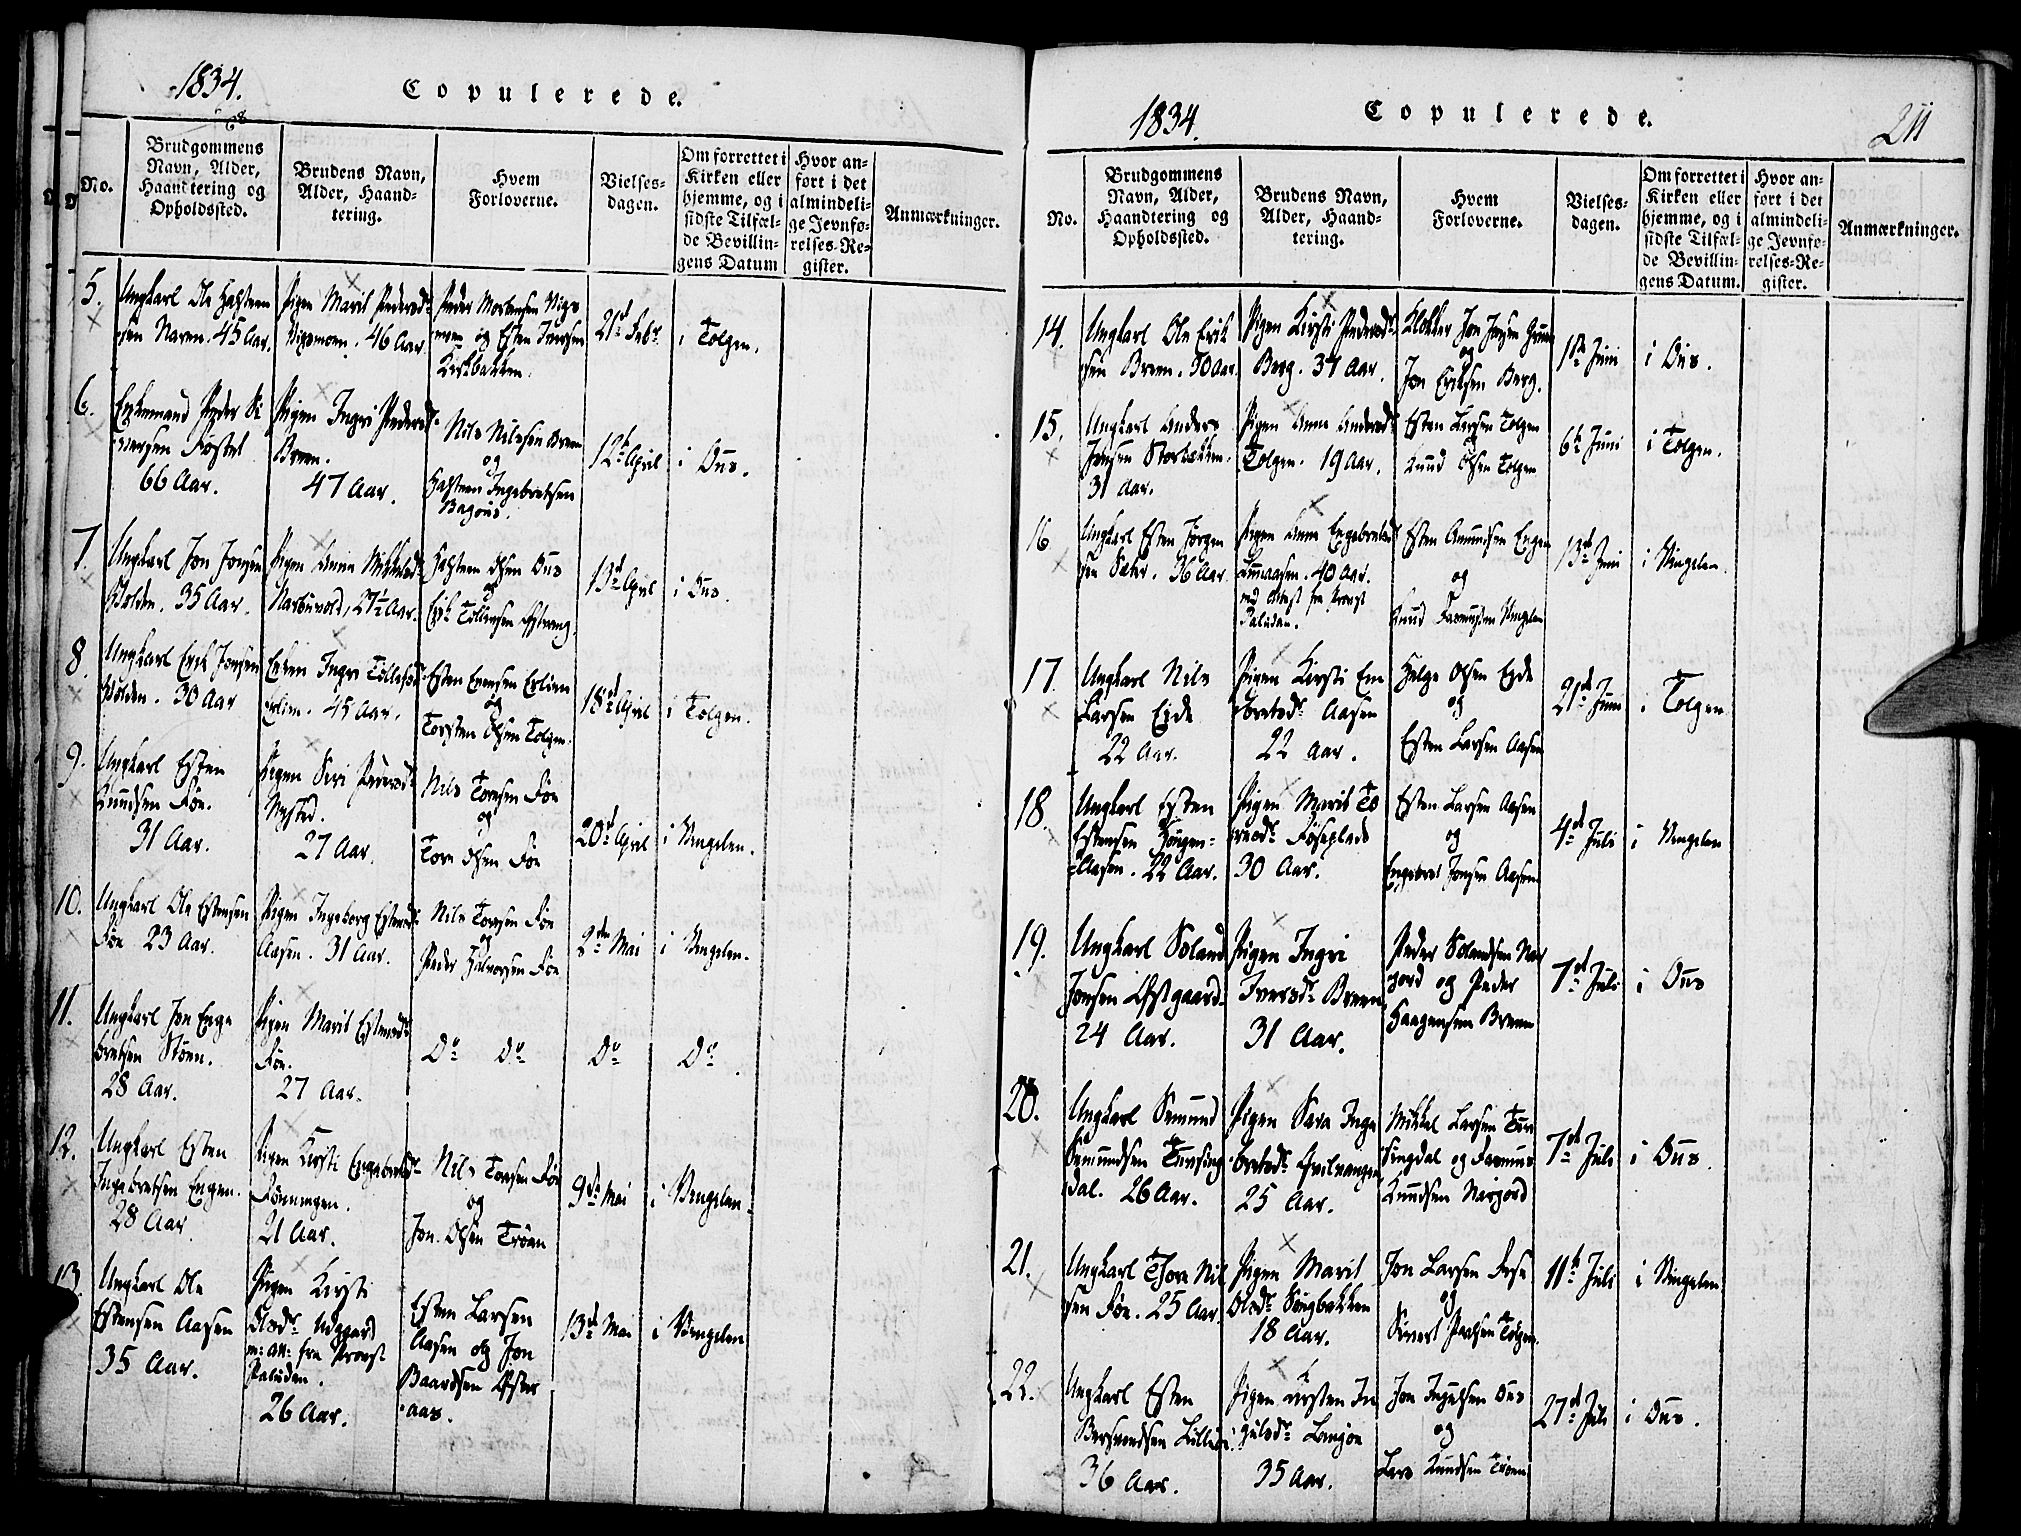 1834.
Copulerede.
No.
Brudgommens
Navn, Alder,
Haandtering og
Opholdssted.
Brudens Navn,
Alder, Haand-
tering.
Hvem
Forloverne.
Vielses-
dagen.
Om forrettet i
Kirken eller
hjemme, og i
sidste Tilfæl-
de Bevillin-
gens Datum
Hvor an-
ført i det
almindeli-
ge Jevnfø-
relses-Re-
gister.
Anmærkninger.
5.
Ungkarl Ole
sen Naren. 45 Aar.
Pigen Marit Pedersdr
Vigemoen. 46 Aar
Peder Mortensen Vige
moen og Esten Iversen
Kirkbakken.
21de Febr.
i Tolgen.
6.
Enkemand Peder Si
versen Fostel
66 Aar.
Pigen Ingri Pedersdr
Breen.
47 Aar.
Nils Nilssen Breen
og
Ingebretsen
12te April
i Ous.
7.
Ungkarl Jon Jonsen
Holden. 35 Aar.
Pigen Anne Mikkelsdr
Narbuvold, 27½ Aar.
Olsen Ous
og
Erik Tollevsen
13de April
i Ous.
8.
Ungkarl Erik Jonsen
Holden. 30 Aar
Enken Ingri Tollefsdr
Erlien. 45 Aar.
Esten Evensen Erlien
og
Torsten Olsen Tolgen.
18de April
i Tolgen.
9.
Ungkarl Esten
Knudsen Føe.
31 Aar.
Pigen Siri Pedersdr
Nysted.
27 Aar.
Nils Toresen Føe
og
Tore Olsen Føe
20de April
i Vingelen.
10.
Ungkarl Ole Estensen
Føe 23 Aar.
Pigen Ingeborg Estensdr
Aasen. 31 Aar.
Nils Toresen Føe
og
Peder Halvorsen Føe
2den Mai
i Vingelen.
11.
Ungkarl Jon Enge
bretsen Støen.
28 Aar.
Pigen Marit Estensdr
Føe.
27 Aar.
Do Do
Do
Do
12.
Ungkarl Esten
Ingebretsen Engen.
28 Aar.
Pigen Kirsti Engebretsdr
Fønningen.
21 Aar.
Nils Toresen Føe
og
Jon Olsen Trøen
9de Mai
i Vingelen.
13.
Ungkarl Ole
Estensen Aasen
35 Aar.
Pigen Kirsti
Olsdr Udgaard
m: att: fra Provst
Paludan.
26 Aar.
Esten Larsen
Aasen og Jon
Baardsen Øster
aas.
13de Mai
i Vingelen
1834.
Copulerede.
211
No.
Brudgommens
Navn, Alder,
Haandtering og
Opholdssted.
Brudens Navn,
Alder, Haand-
tering.
Hvem
Forloverne.
Vielses-
dagen.
Om forrettet i
Kirken eller
hjemme, og i
sidste Tilfæl-
de Bevillin-
gens Datum.
Hvor an-
ført i det
almindeli-
ge Jevnfø-
relses-Re-
gister.
Anmærkninger.
14.
Ungkarl Ole Erik
sen Breen. 30 Aar.
Pigen Kirsti Pedersdr
Berg. 37 Aar.
Klokker Jon Jonsen
og
Jon Eriksen Berg.
1ste Juni
i Ous.
15.
Ungkarl Anders
Jonsen Storbekken.
31 Aar.
Pigen Anne Andersdr
Tolgen. 19 Aar.
Esten Larsen Tolgen
og
Knud Olsen Tolgen
6te Juni
i Tolgen.
16
Ungkarl Esten Jørgen
sen Sæter. 36 Aar.
Pigen Anne Engebretsdr
40 Aar.
med Attest fra Provst
Paludan.
Esten Amundsen Engen
og
Knud Rasmussen Vingelen
13de Juni
i Vingelen.
17
Ungkarl Nils
Larsen Eide
22 Aar.
Pigen Kirsti Em
bretsdr Aasen
22 Aar.
Helge Olsen Eide
og
Esten Larsen Aasen
21de Juni
i Tolgen
18.
Ungkarl Esten
Estensen Haugen-
Aasen. 22 Aar.
Pigen Marit To
resdr Føseplads
30 Aar.
Esten Larsen Aasen
og
Engebret Jonsen Aasen
4de Juli
i Vingelen
19.
Ungkarl Soland
Jonsen Østgaard.
24 Aar.
Pigen Ingri
Iversdr Breen
31 Aar.
Peder Solandsen Nar
jord og Peder
Haagensen Breen
7de Juli
i Ous
20.
Ungkarl Semund
Semundsen Tversing
dal. 26 Aar.
Pigen Sara Inge
bretsdr
25 Aar.
Mikkel Larsen Tver
singdal og Rasmus
Knudsen Narjord
7de Juli
i Ous.
21.
Ungkarl Thore Nil
sen Føe. 25 Aar.
Pigen Marit
Olsdr Sangbakken
18 Aar.
Jon Larsen
og
Sivert Paulsen Tolgen.
11te Juli
i Vingelen
22.
Ungkarl Esten
Bersvendsen
36 Aar.
Pigen Kirsten In
gulsdr Langøe
35 Aar.
Jon Ingulsen Ous
og
Lars Knudsen Trøen
27de Juli
i Ous.